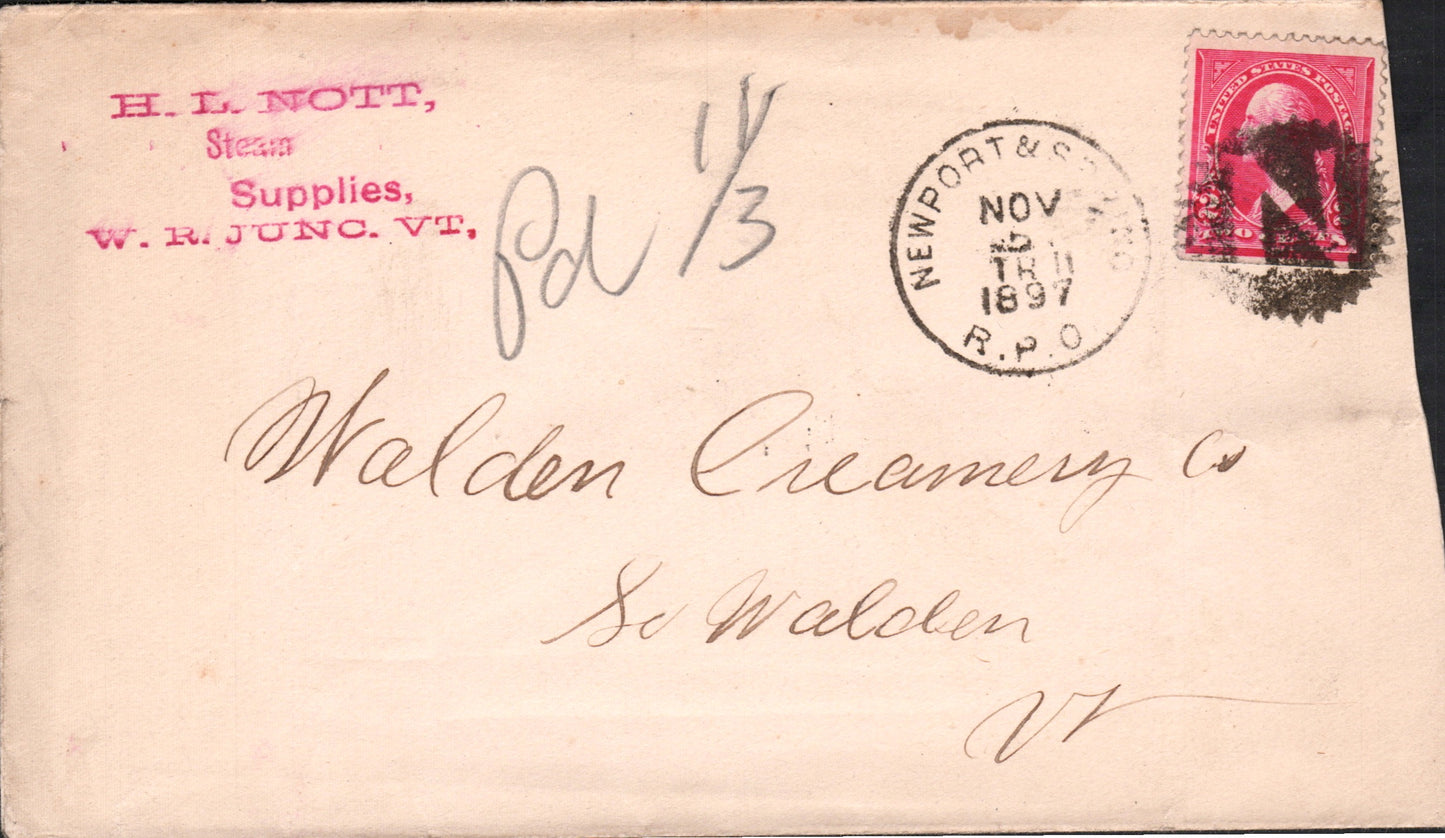 H. L. NOTT,
Steam
Supplies,
W. R. JUNC. VT,
Pd 11/3
NEWPORT &
NOV
TR 11
1897
R.P.O
UNITED STATES POSTAGE
Walden Creamery Co
So Walden
Vt